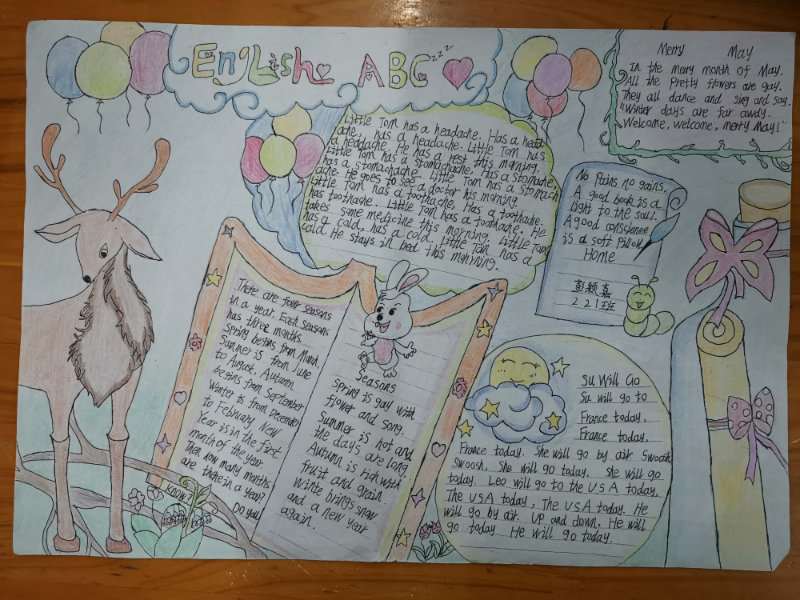 English ABC zzz
Merry May
In the merry month of May.
All the Pretty flowers are gay.
They all dance and sing and say.
"Winter days are far away.
Welcome, welcome, merry May!"
Little Tom has a headache. Has a head-
ache, has a headache. Little Tom has
a headache. He has a rest this morning.
Little Tom has a stomachache. Has a stomache
has a stomachache. Little Tom has a stomach
ache. He goes to see a doctor his morning
Little Tom has a toothache. Has a toothache.
has toothashe. Little Tom has a toothache. He
takes some medicine this morning. Little Tom
has a cold, has a cold, Little Tom has a
cold. He stays in bed this morning.
No Pains no gains.
A good book is a
light to the soul.
A good conscience
is a soft Pillow.
Home
彭颖嘉
221班
There are four seasons
in a year. Each seasons
has three months.
spring begins from March
Summer is from June
to August. Autumn
begins from September
winter is from December
to February. New
Year is in the first
month of the year.
Then how many months
are there in a year?
Do you
know?
Seasons
spring is gay with
flower and song.
Summer is hot and
the days are long
Autumn is rich with
fruit and grain.
Winte brings snow
and a new year
again.
Su Will Go
Su will go to
France today.
France today.
France today. She will go by air. Swoosh
Swoosh. She will go today. She will go
today. Leo will go to the USA today.
The USA today, The USA today. He
will go by air. Up and down. He will
go today He will go today.